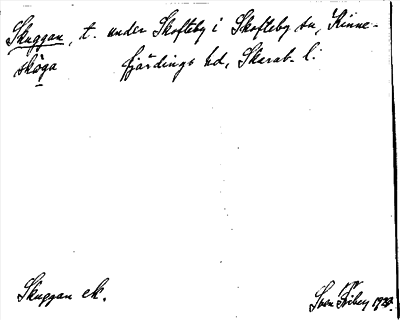 Skuggan, t. under Skofteby i Skofteby sn, Kinne-
skoga fjärdings hd, Skarab. l.
Skuggan ek.
Sven 19